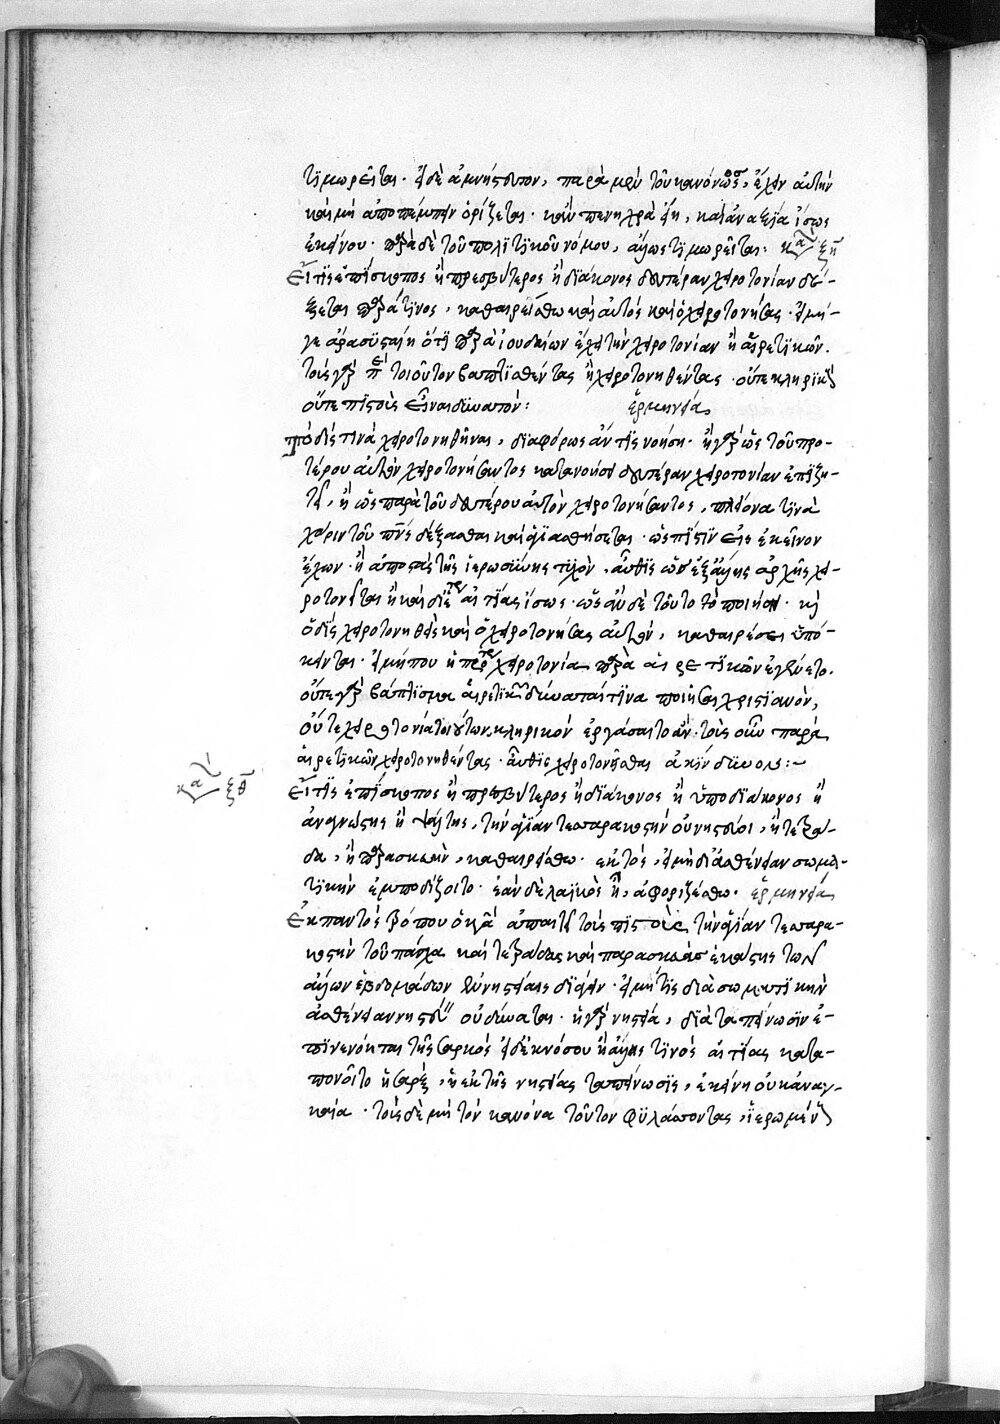 τιμωρεῖται· εἰ δὲ ἀμνήστευτον, παρὰ μὲν τοῦ κανόνος, ἔχειν αὐτὴν
καὶ μὴ ἀποπέμπειν ὁρίζεται· κἂν πενιχρὰ εἴη, καὶ ἀναξία ἴσως
ἐκείνου· παρὰ δὲ τοῦ πολιτικοῦ νόμου, ἄλλως τιμωρεῖται: κα ξη
Εἴ τις ἐπίσκοπος ἢ πρεσβύτερος ἢ διάκονος δευτέραν χειροτονίαν δέ-
ξεται παρά τινος, καθαιρείσθω καὶ αὐτὸς καὶ ὁ χειροτονήσας· εἰ μή-
γε ἄρα συσταίη ὅτι παρὰ ἰουδαίων ἔχει τὴν χειροτονίαν ἢ αἱρετικῶν.
τοὺς γὰρ π τοιούτων βαπτισθέντας ἢ χειροτονηθέντας οὔτε κληρικ
οὔτε πιστοὺς εἶναι δυνατόν: ἑρμηνεία
Τὸ δίς τινὰ χειροτονηθῆναι, διαφόρως ἄν τις νοήσῃ· ἢ γὰρ ὡς τοῦ προ-
τέρου αὐτὸν χειροτονήσαντος καταγνοὺς δευτέραν χειροτονίαν ἐπιζη-
τεῖ, ἢ ὡς παρὰ τοῦ δευτέρου αὐτὸν χειροτονήσαντος, πλείονα τινὰ
χάριν τοῦ πνς δέξασθαι καὶ ἁγιασθήσεται· ὡς πίστιν εἰς ἐκεῖνον
ἔχων· ἢ ἀποστὰς τῆς ἱερωσύνης τυχὸν, αὖθις ὡς ἐξ ἄλλης ἀρχῆς χει-
ροτονεῖται ἢ καὶ δι' αἰτίας ἴσως· ὡς ἂν δὲ τοῦτο ποιήσῃ·
ὁ δὶς χειροτονηθεὶς καὶ ὁ χειροτονήσας αὐτὸν, καθαιρέσει ὑπό-
κεινται· εἰ μήπου ἡ χειροτονία παρὰ αἱρετικῶν ἐγένετο.
οὔτε γὰρ βάπτισμα αἱρετικῶν δύναται τινα ποιῆσαι χριστιανὸν,
οὔτε χειροτονία τούτων κληρικὸν ἐργάσαιτο ἄν· τοὺς οὖν παρὰ
αἱρετικῶν χειροτονηθέντας· αὖθις χειροτονεῖσθαι ἀκίνδυνον:~
κα ξθ
Εἴ τις ἐπίσκοπος ἢ πρεσβύτερος ἢ διάκονος ἢ ὑποδιάκονος ἢ
ἀναγνώστης ἢ ψάλτης, τὴν ἁγίαν τεσσαρακοστὴν οὐ νηστεύοι, ἢ τετρά-
δα, ἢ παρασκευὴν, καθαιρείσθω· ἐκτὸς, εἰ μὴ δι' ἀσθένειαν σωμα-
τικὴν ἐμποδίζοιτο· ἐὰν δὲ λαϊκὸς ᾖ, ἀφοριζέσθω· ἑρμηνεία
Ἐκ παντὸς τρόπου ὁ κανὼν ἀπαιτεῖ τοὺς πιστοὺς τὴν ἁγίαν τεσσαρα-
κοστὴν τοῦ πάσχα καὶ τετράδας καὶ παρασκευὰς ἑκάστης τῶν
ἄλλων ἑβδομάδων ἐν νηστείαις διάγειν· εἰ μή τις διὰ σωματικὴν
ἀσθένειαν νηστεύειν οὐ δύναται· ἡ γὰρ νηστεία, διὰ ταπείνωσιν ἐ-
πινενόηται τῆς σαρκὸς εἰ δὲ κνόσου ἢ ἄλλης τινὸς αἰτίας κατα-
πονοῖτο ἡ σὰρξ, ἡ ἐκ τῆς νηστείας ταπείνωσις, ἐκείνη οὐκ ἀναγ-
καία· τοὺς δὲ μὴ τὸν κανόνα τοῦτον φυλάττοντας, ἱερωμέν